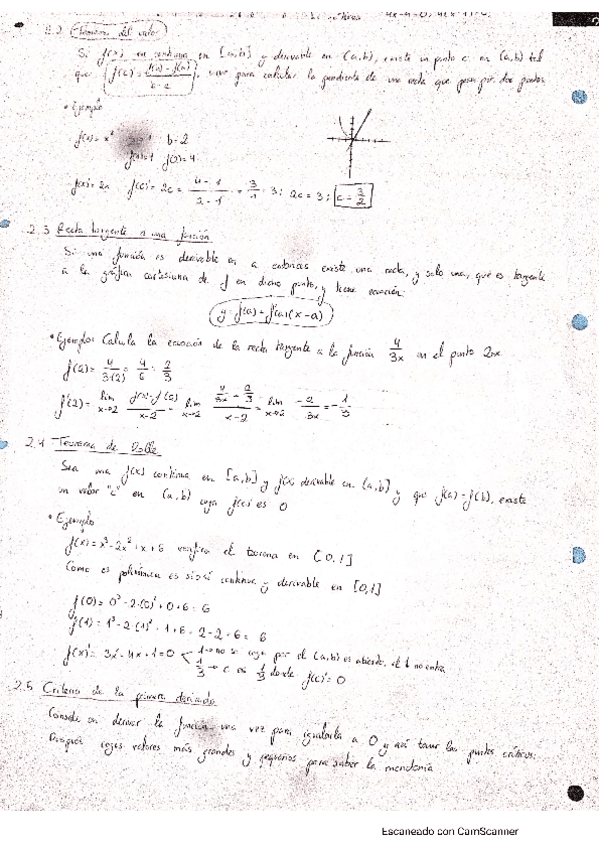 Teorema del valor
Si f(x) es continua en [a,b] y derivable en (a,b), existe un punto c en (a,b) tal
que f'(c) = f(b) - f(a) / b - a, para calcular la pendiente de una recta que pasa por dos puntos
• Ejemplo
f(x) = x² b = 2
f(a) = 1 f(2) = 4
f'(x) = 2x f'(c) = 2c = 4 - 1 / 2 - 1 = 3 / 1 = 3; 2c = 3; c = 3/2
2.3 Recta tangente a una función
Si una función es derivable en a entonces existe una recta, y solo una, que es tangente
a la gráfica cartesiana de f en dicho punto, y tiene ecuación:
y = f(a) + f'(a)(x - a)
• Ejemplo: Calcula la ecuación de la recta tangente a la función 4/3x en el punto
f(2) = 4/3·(2) = 4/6 = 2/3
f'(2) = lim x→2 f(x) - f(a) / x - 2 = lim x→2 4/3x - 2/3 / x - 2 = lim x→2 -2/3x = -1/3
2.4 Teorema de Rolle
Sea una f(x) continua en [a,b] y f(x) derivable en (a,b) y que f(a) = f(b), existe
un valor "c" en (a,b) cuya f'(c) es 0
• Ejemplo
f(x) = x³ - 2x² + x + 6 verifica el teorema en [0,1]
Como es polinómica es continua y derivable en [0,1]
f(0) = 0³ - 2·(0)² + 0 + 6 = 6
f(1) = 1³ - 2·(1)² + 1 + 6 = 2 - 2 + 6 = 6
f'(x) = 3x² - 4x + 1 = 0 1 → no se coge por el (a,b) es abierto, el 1 no entra
1/3 → c es 1/3 donde f'(c) = 0
2.5 Criterio de la primera derivada
Consiste en derivar la función una vez para igualarla a 0 y así tener los puntos críticos.
Después coges valores más grandes y pequeños para saber la monotonía
Escaneado con CamScanner